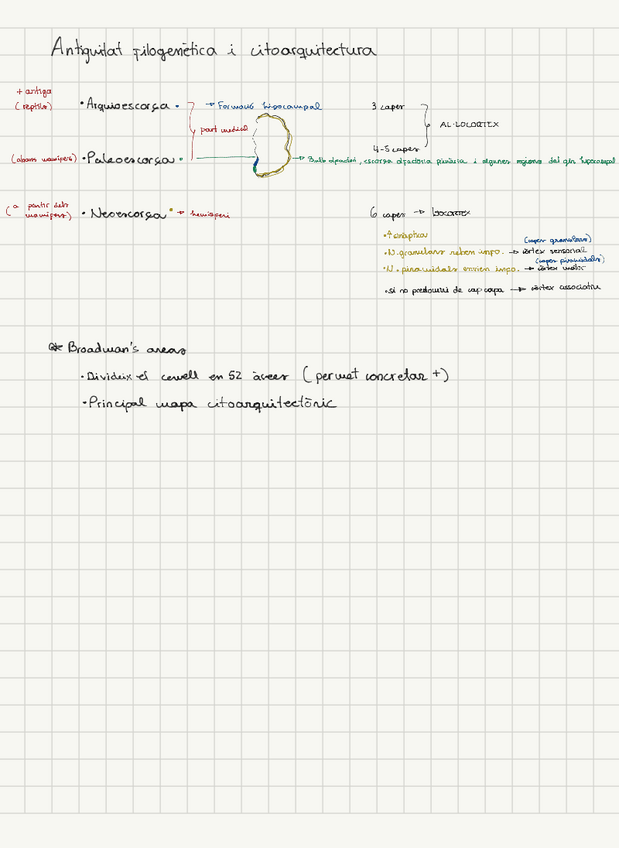 Antiguitat filogenètica i citoarquitectura
+ antiga
(rèptils) • Arquioescorça • → Formació hipocampal 3 capes
part medial AL·LOCORTEX
(abans mamífers) • Paleoescorça • → Bulb olfactori, escorça olfactòria primària i algunes regions del gir hipocampal 4-5 capes
(a partir dels mamífers) • Neoescorça • → hemisferi 6 capes → Isocortex
• ↑ sinàptica
(capes granulars)
• N. granulars reben info. → còrtex sensorial
(capes piramidals)
• N. piramidals envien info. → còrtex motor
• si no predomini de cap capa → còrtex associatiu
* Broadman's areas
• Divideix el cervell en 52 àrees (permet concretar +)
• Principal mapa citoarquitectònic